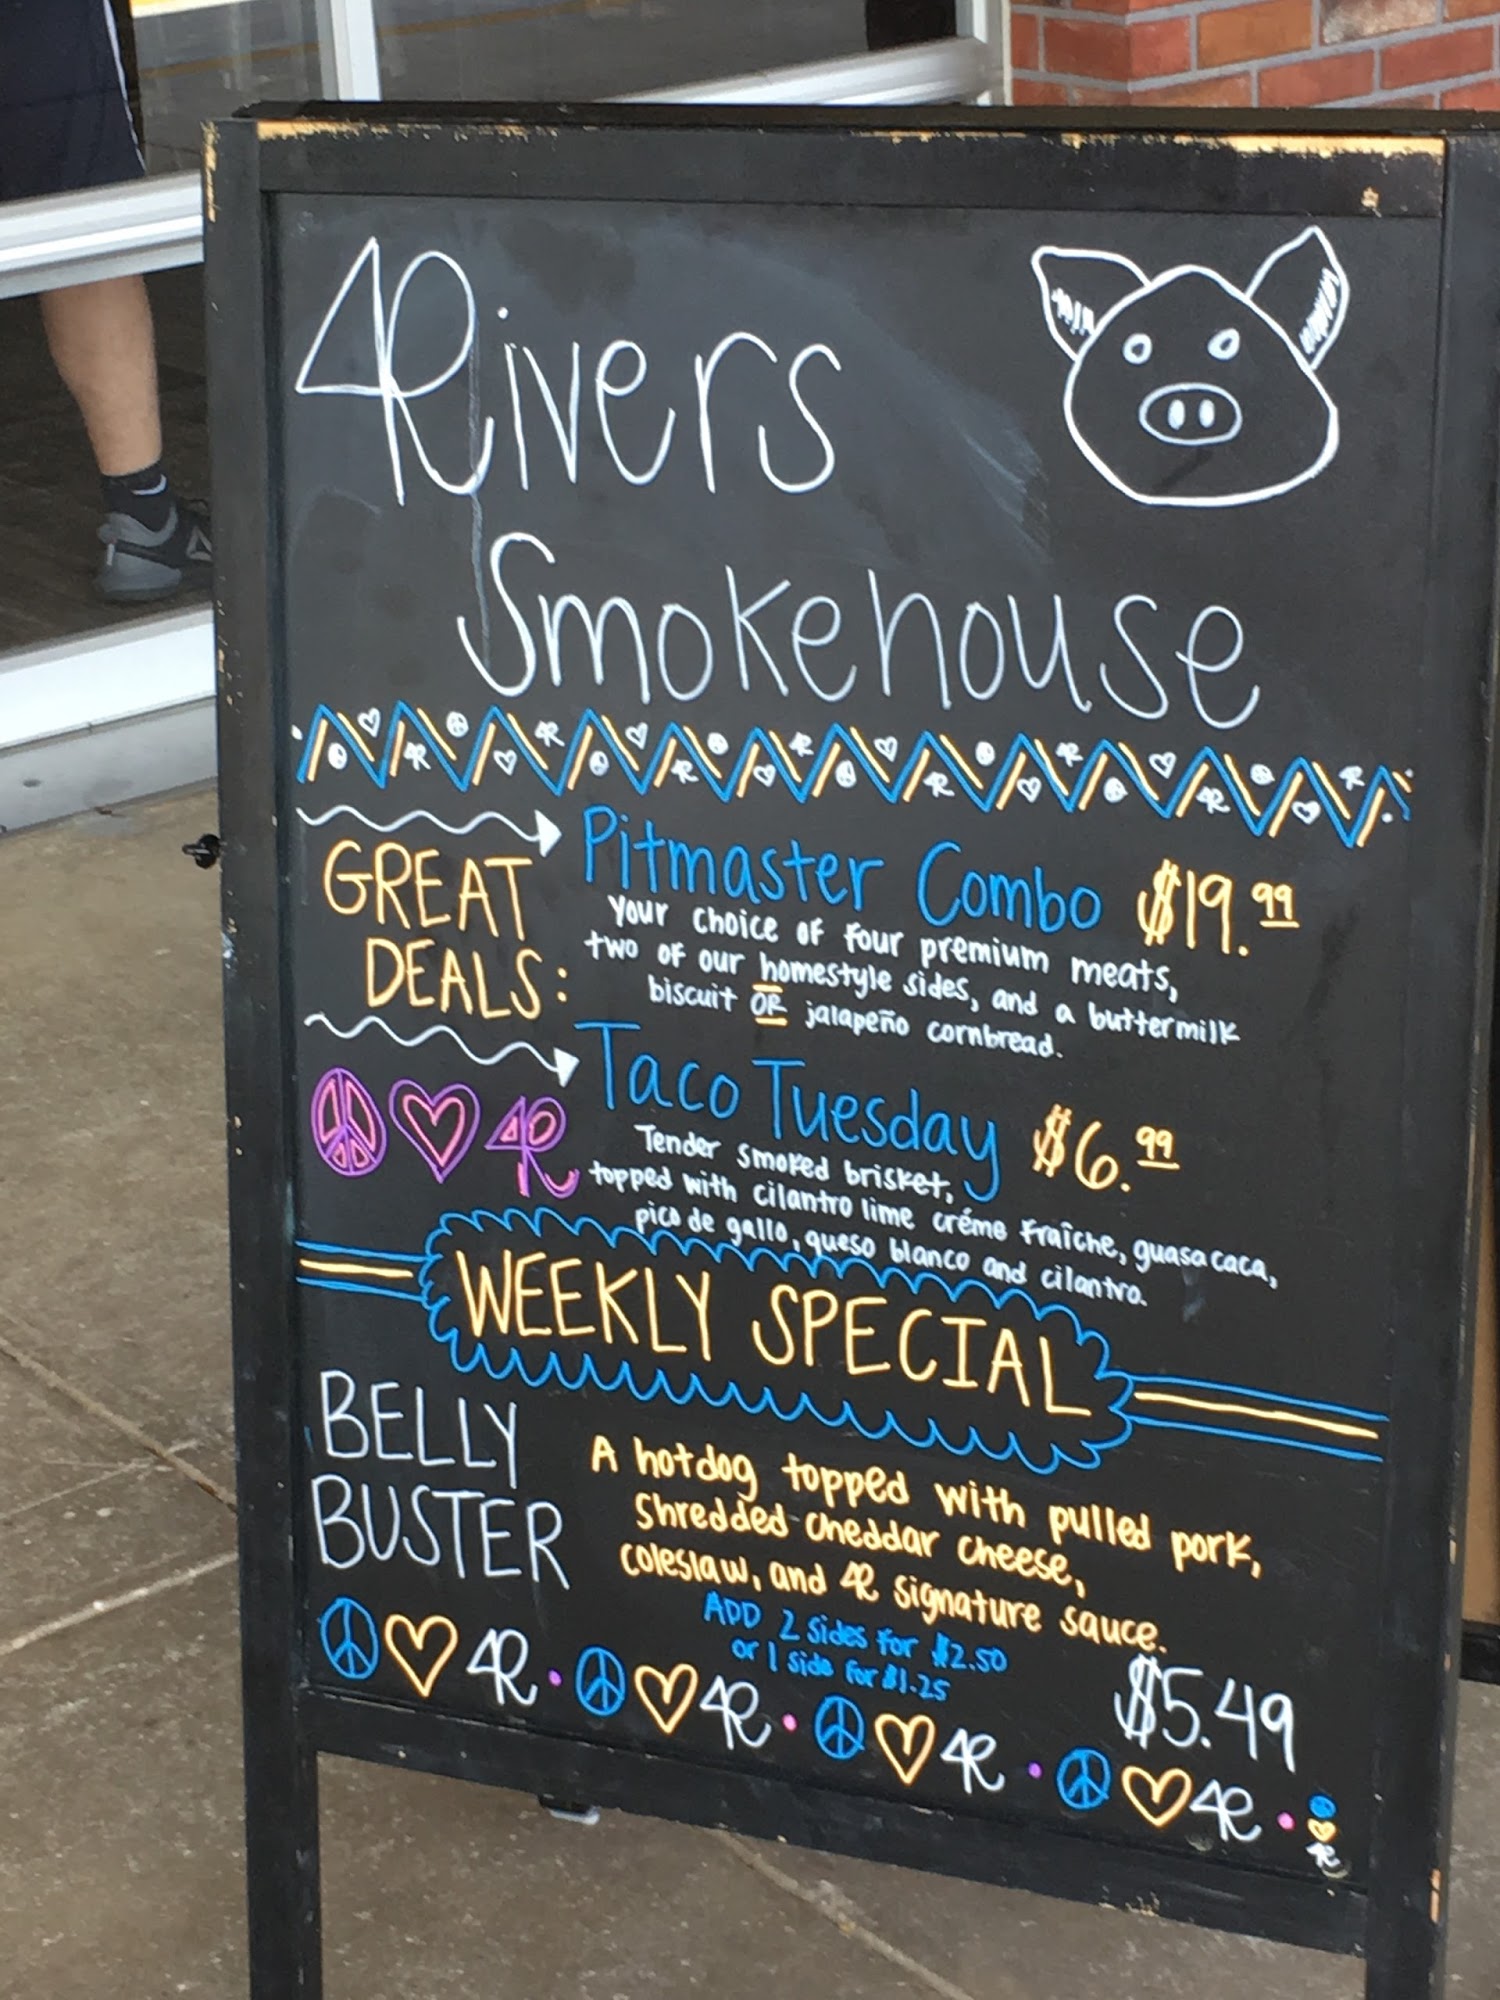 4Rivers
Smokehouse
GREAT
DEALS:
Pitmaster Combo $19.99
Your choice of four premium meats,
two of our homestyle sides, and a buttermilk
biscuit OR jalapeño cornbread.
Taco Tuesday $6.99
Tender smoked brisket,
topped with cilantro lime créme fraîche, guasacaca,
pico de gallo, queso blanco and cilantro.
4R
WEEKLY SPECIAL
BELLY
BUSTER
A hotdog topped with pulled pork,
Shredded cheddar cheese,
coleslaw, and 4R signature sauce.
ADD 2 sides for $2.50
or 1 side for $1.25
$5.49
4R • 4R • 4R • 4R • 4R